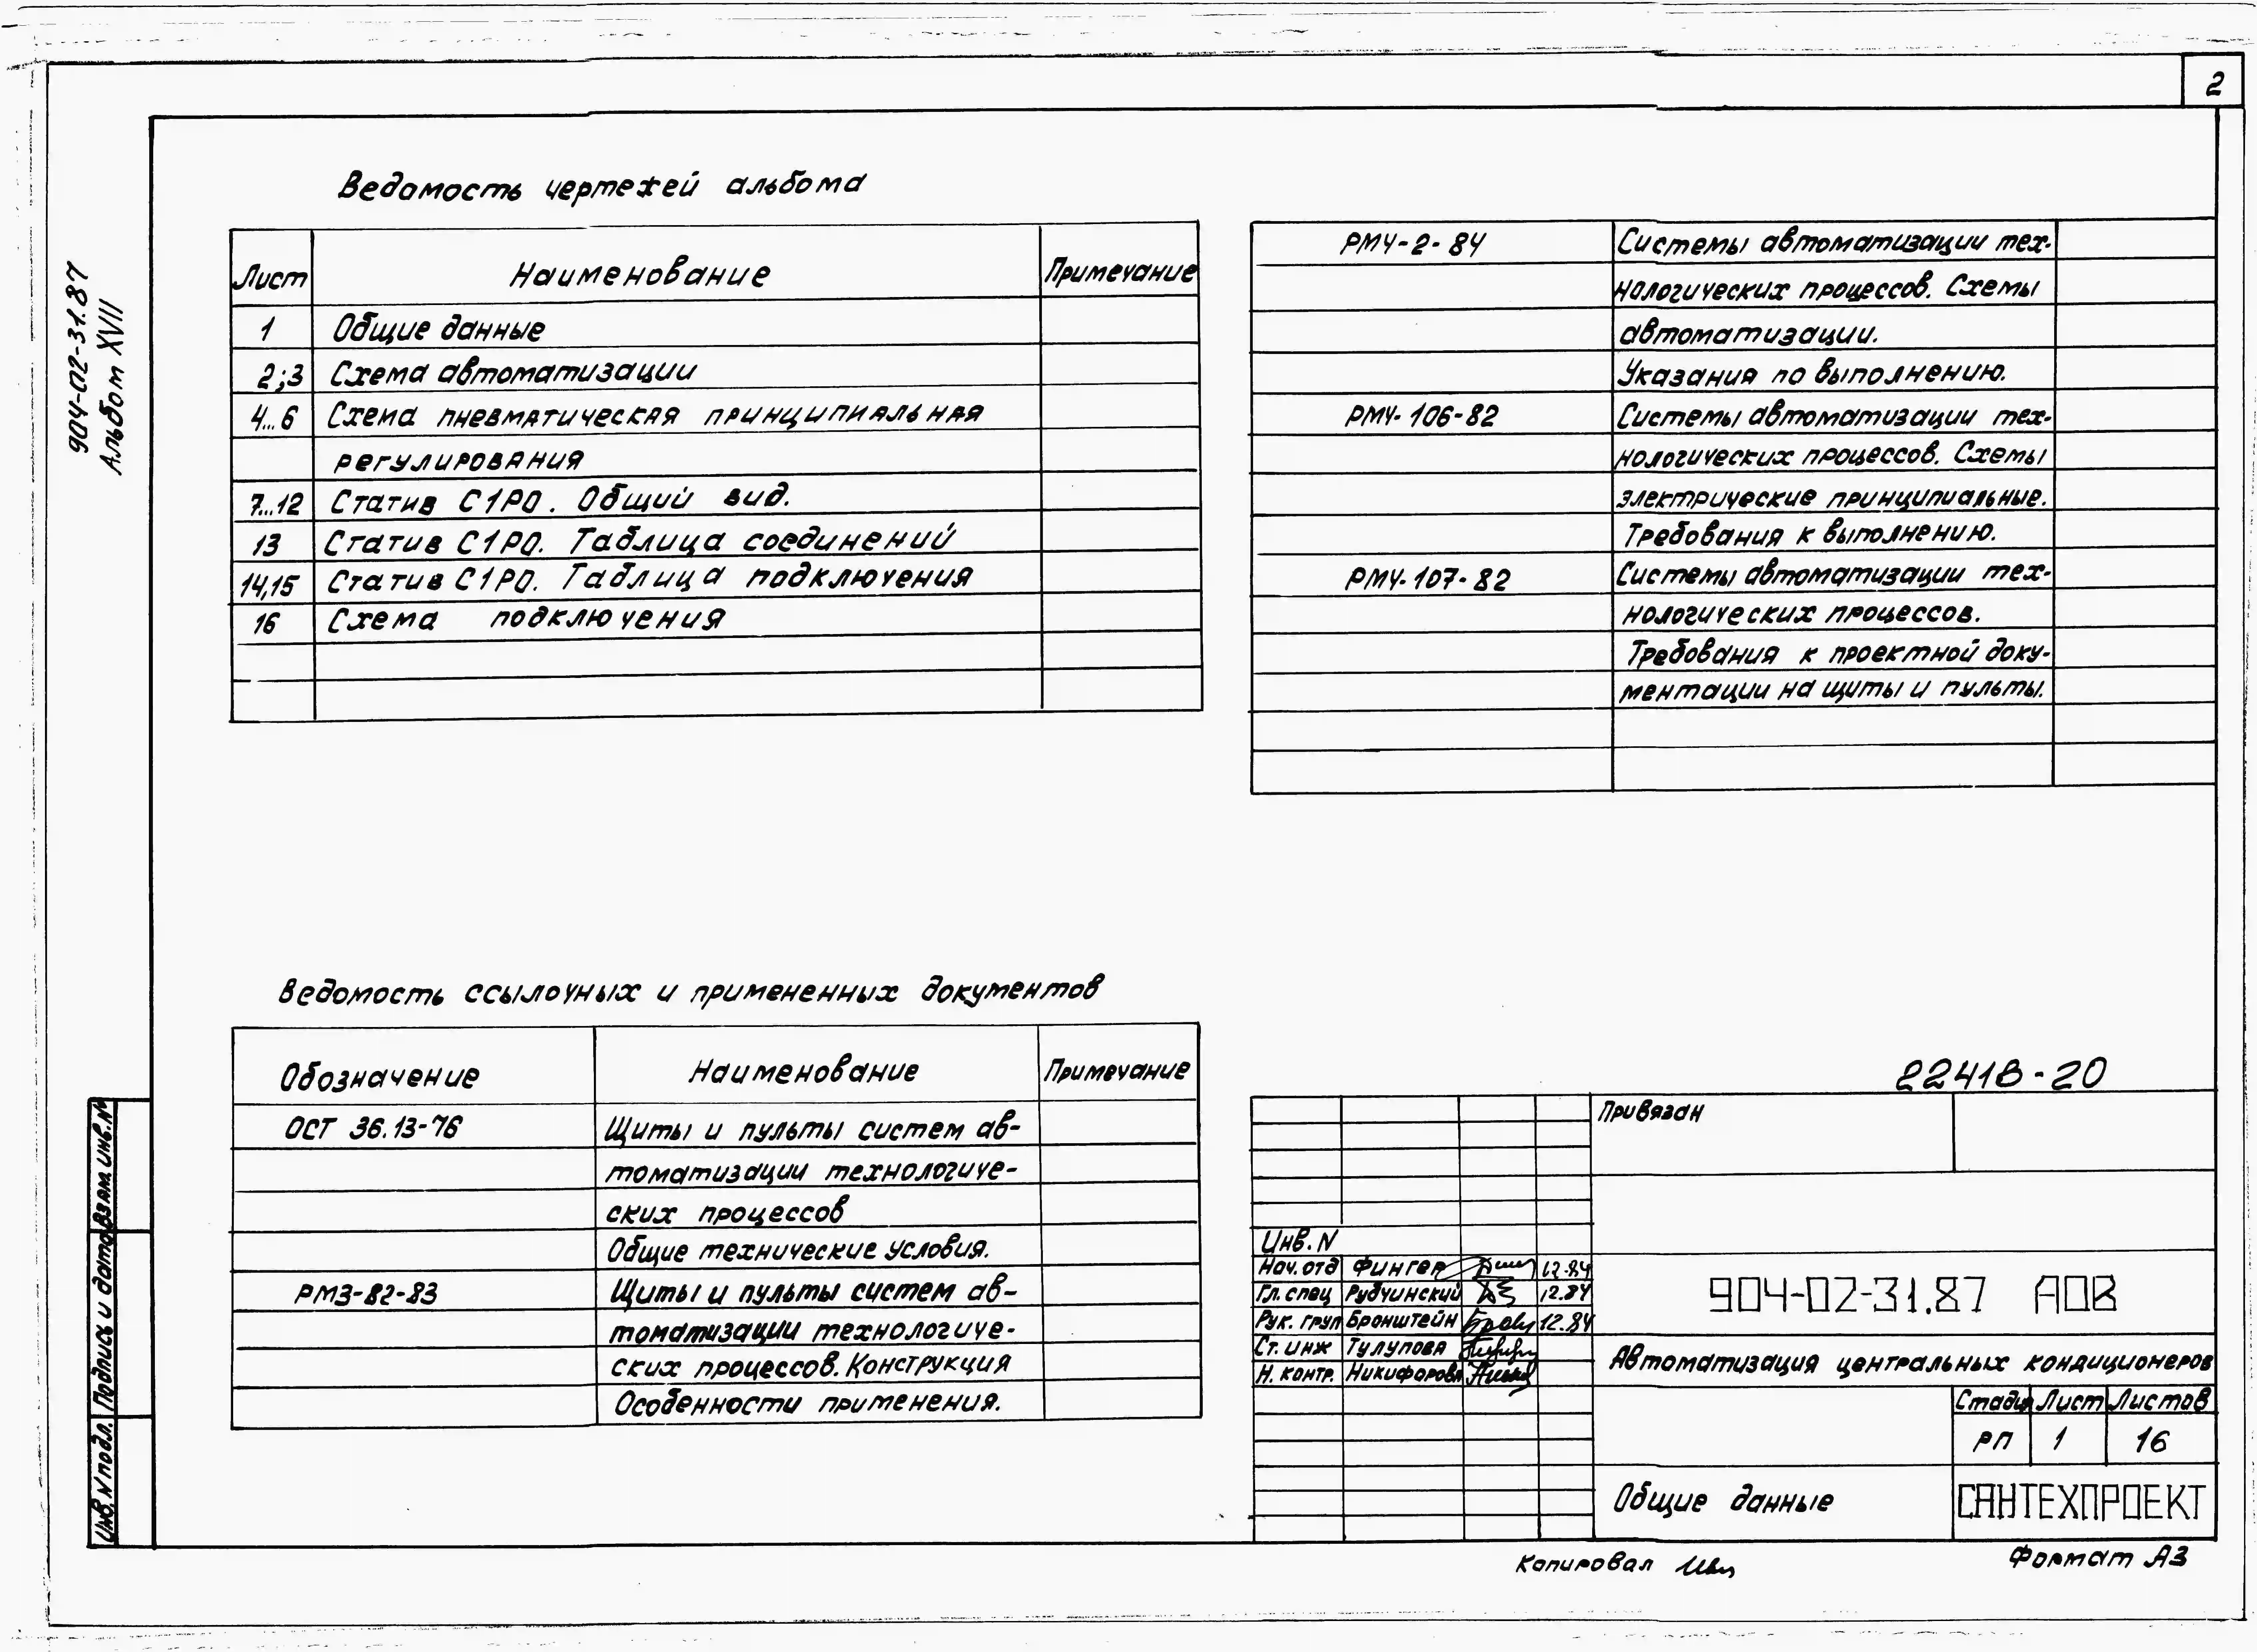 2
904-02-31.87
Альбом XVII
Ведомость чертежей альбома
Лист Наименование Примечание
1 Общие данные
2;3 Схема автоматизации
4...6 Схема пневматическая принципиальная
регулирования
7...12 Статив С1РО. Общий вид.
13 Статив С1РО. Таблица соединений
14,15 Статив С1РО. Таблица подключения
16 Схема подключения
РМ4-2-84 Системы автоматизации тех-
нологических процессов. Схемы
автоматизации.
Указания по выполнению.
РМ4-106-82 Системы автоматизации тех-
нологических процессов. Схемы
электрические принципиальные.
Требования к выполнению.
РМ4-107-82 Системы автоматизации тех-
нологических процессов.
Требования к проектной доку-
ментации на щиты и пульты.
Ведомость ссылочных и примененных документов
Обозначение Наименование Примечание
ОСТ 36.13-76 Щиты и пульты систем ав-
томатизации технологиче-
ских процессов
Общие технические условия.
РМ3-82-83 Щиты и пульты систем ав-
томатизации технологиче-
ских процессов. Конструкция
Особенности применения.
22418-20
Привязан
Инв. N
Нач. отд Фингер 12.84
Гл. спец Рубчинский 12.84
Рук. груп Бронштейн 12.84
Ст. инж Тулупова
Н. контр. Никифорова
904-02-31.87 АОВ
Автоматизация центральных кондиционеров
Стадия Лист Листов
РП 1 16
Общие данные
САНТЕХПРОЕКТ
Копировал
Формат А3
Взам. инв. №
Подпись и дата
Инв. N подл.